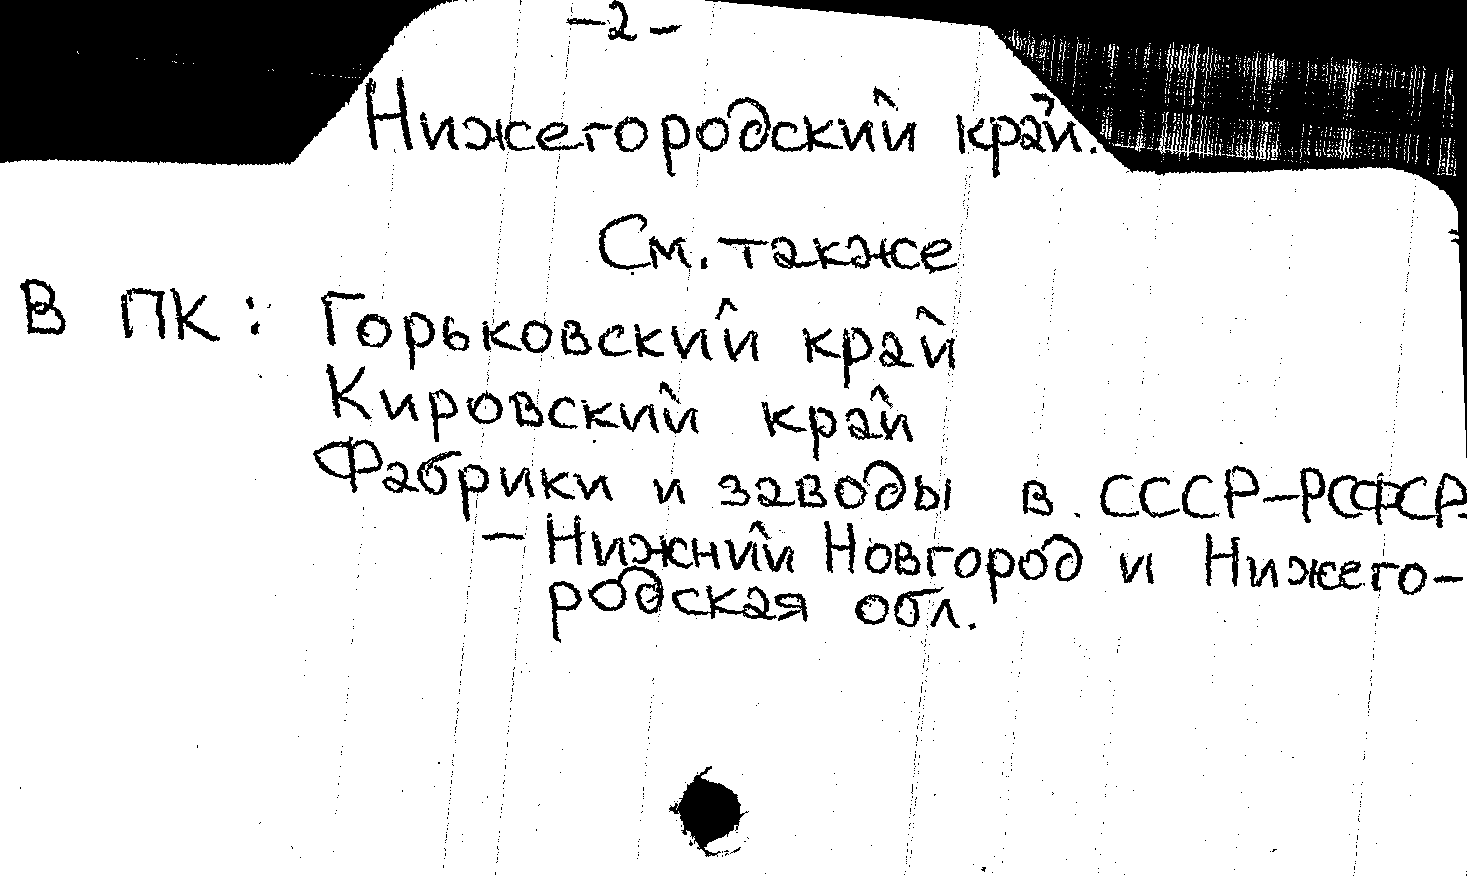 -2-
Нижегородский край.
См. также
В ПК: Горьковский край
Кировский край
Фабрики и заводы в СССР-РСФСР-
- Нижний Новгород и Нижего-
родская обл.